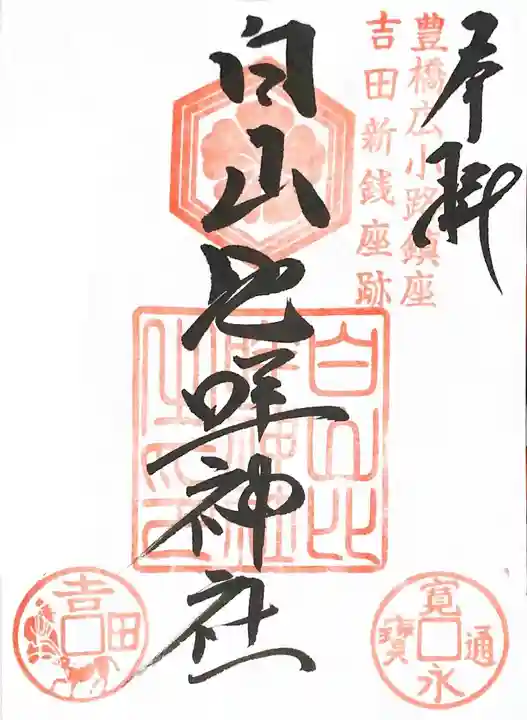 奉拝
豊橋広小路鎮座
吉田新銭座跡
白山比咩神社
白山比
咩神社
之印
吉田
寛永通寳